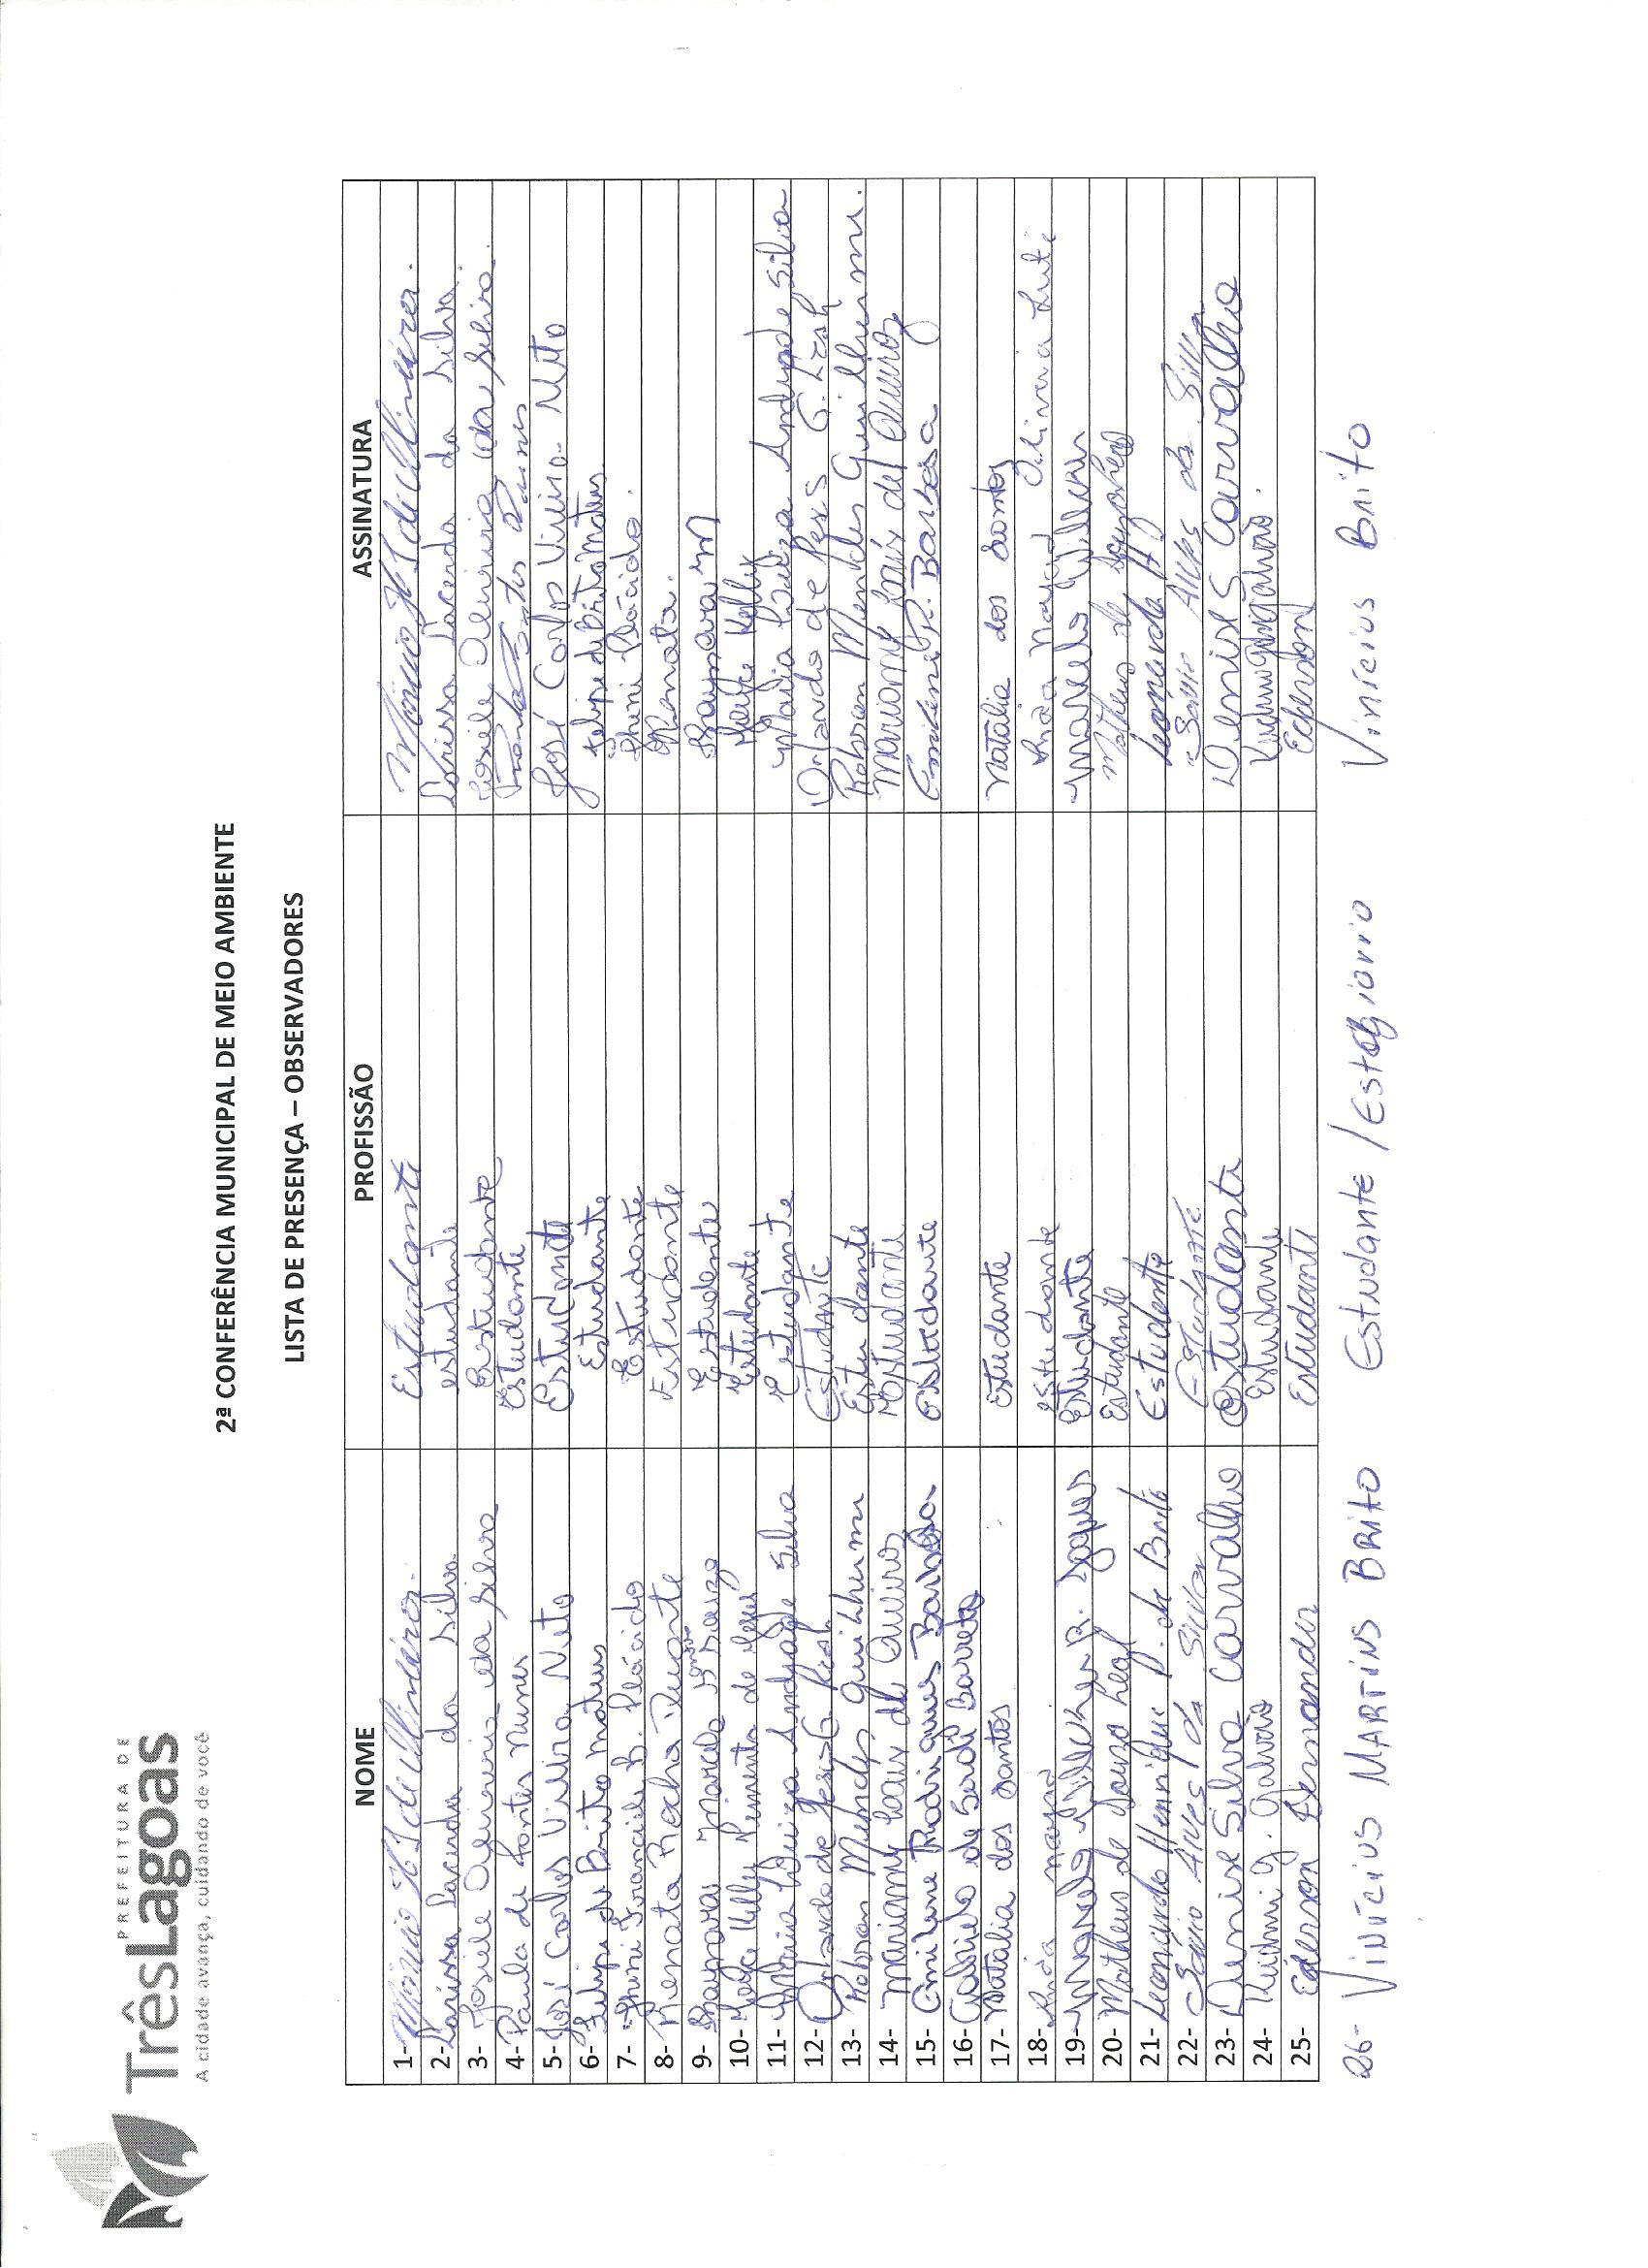 PREFEITURA DE
TrêsLagoas
A cidade avança, cuidando de você
2ª CONFERÊNCIA MUNICIPAL DE MEIO AMBIENTE
LISTA DE PRESENÇA – OBSERVADORES
NOME PROFISSÃO ASSINATURA
1- Estudante
2- Larissa Lacerda da Silva estudante Larissa Lacerda da Silva
3- Josiele Oliveira da Silva Estudante Josiele Oliveira da Silva.
4- Paula de Fontes Nunes Estudante
5- José Carlos Vieira Neto Estudante José Carlos Vieira Neto
6- Felipe de Brito Mateus Estudante Felipe de Brito Mateus
7- Franciele B. Plácido Estudante Plácido.
8- Renata Rocha Duarte Estudante Renata.
9- Marcelo Estudante
10- Kelly Pimenta de Estudante Kelly
11- Maria Luiza Andrade Silva Estudante Maria Luiza Andrade Silva
12- Orlando de Estudante Orlando de
13- Robson Mendes Guilhermi Estudante Robson Mendes Guilhermi.
14- Mariany Laix de Queiroz Estudante Mariany Laix de Queiroz
15- Emilene Rodrigues Barbosa Estudante Emilene R. Barbosa
16- Gabriela de Barreto
17- Natalia dos Santos estudante Natalia dos Santos
18- estudante
19- Estudante
20- Matheus de Souza Leal Estudante Matheus de
21- Leonardo Henrique de Brito Estudante Leonardo H
22- Sávio Alves da Silva Estudante Sávio Alves da Silva
23- Denise Silva Carvalho Estudante Denise S. Carvalho
24- G. Galvão Estudante
25- Ederson Fernandes Estudante Ederson
26- Vinícius Martins Brito Estudante / Estagiario Vinícius Brito